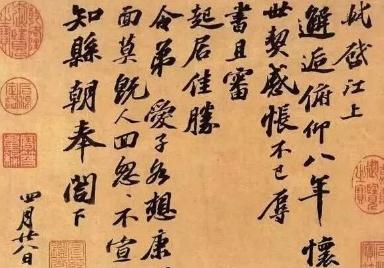 軾啟江上
邂逅俯仰八年懷
世契感悵不已辱
書且審
起居佳勝
令弟愛子各想康
面莫既人回怱〻不宣
知縣朝奉閣下
四月廿八日